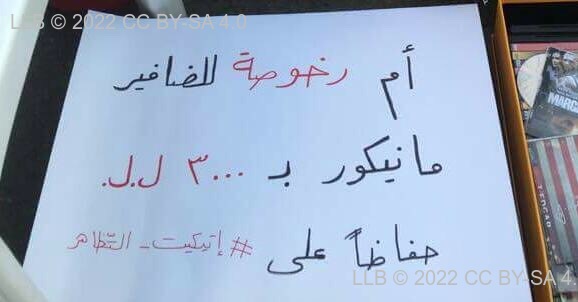 LLB © 2022 CC BY-SA 4.0
أم رخوصة للضافير
مانيكور بـ ٣٠٠٠ ل.ل.
حفاظاً على #إتيكيت_التظاهر
MARC
LLB © 2022 CC BY-SA 4.